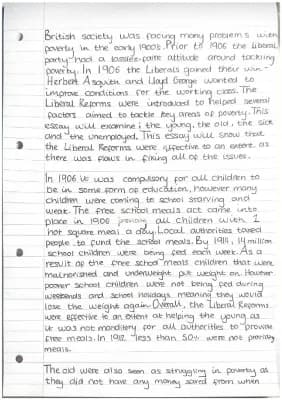 British society was facing many problems with
poverty in the early 1900s. Prior to 1906 the Liberal
party had a laissez-faire attitude around tackling
poverty. In 1906 the Liberals gained their win -
Herbert Asquith and Lloyd George wanted to
improve conditions for the working class. The
Liberal Reforms were introduced to helped several
factors aimed to tackle key areas of poverty. This
essay will examine; the young, the old, the sick
and the unemployed. This essay will show that
the Liberal Reforms were effective to an extent as
there was flaws in fixing all of the issues.
In 1906 it was compulsory for all children to
be in some form of education, however many
children were coming to school starving and
weak. The free school meals act came into
place in 1906 all children with 1
hot square meal a day. Local authorities taxed
people to fund the school meals. By 1914, 14 million
school children were being fed each week. As a
result of the free school meals children that were
malnourished and underweight put weight on. However
poorer school children were not being fed during
weekends and school holidays meaning they would
lose the weight again. Overall, the Liberal Reforms
were effective to an extent at helping the young as
it was not manditory for all authorities to provide
free meals. In 1912 less than 50% were not providing
meals.
The old were also seen as struggling in poverty as
they did not have any money saved from when